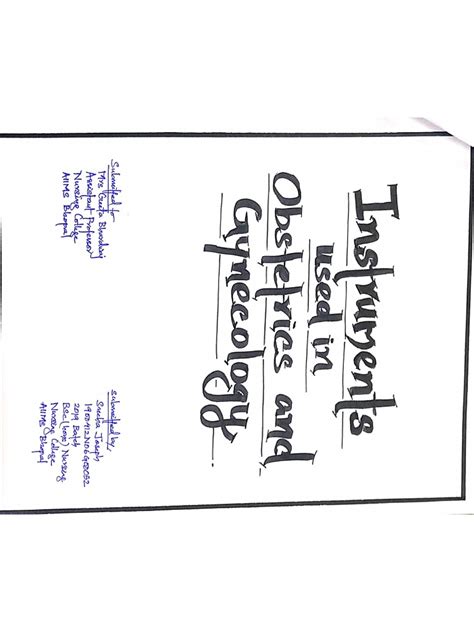 Instruments
used in
Obstetrics and
Gynecology
Submitted to
Mrs Geeta Bhardwaj
Assistant Professor
Nursing College
AIIMS Bhopal
Submitted by,
Joseph
2019 Batch
Bsc (hons) Nursing
Nursing College
AIIMS Bhopal